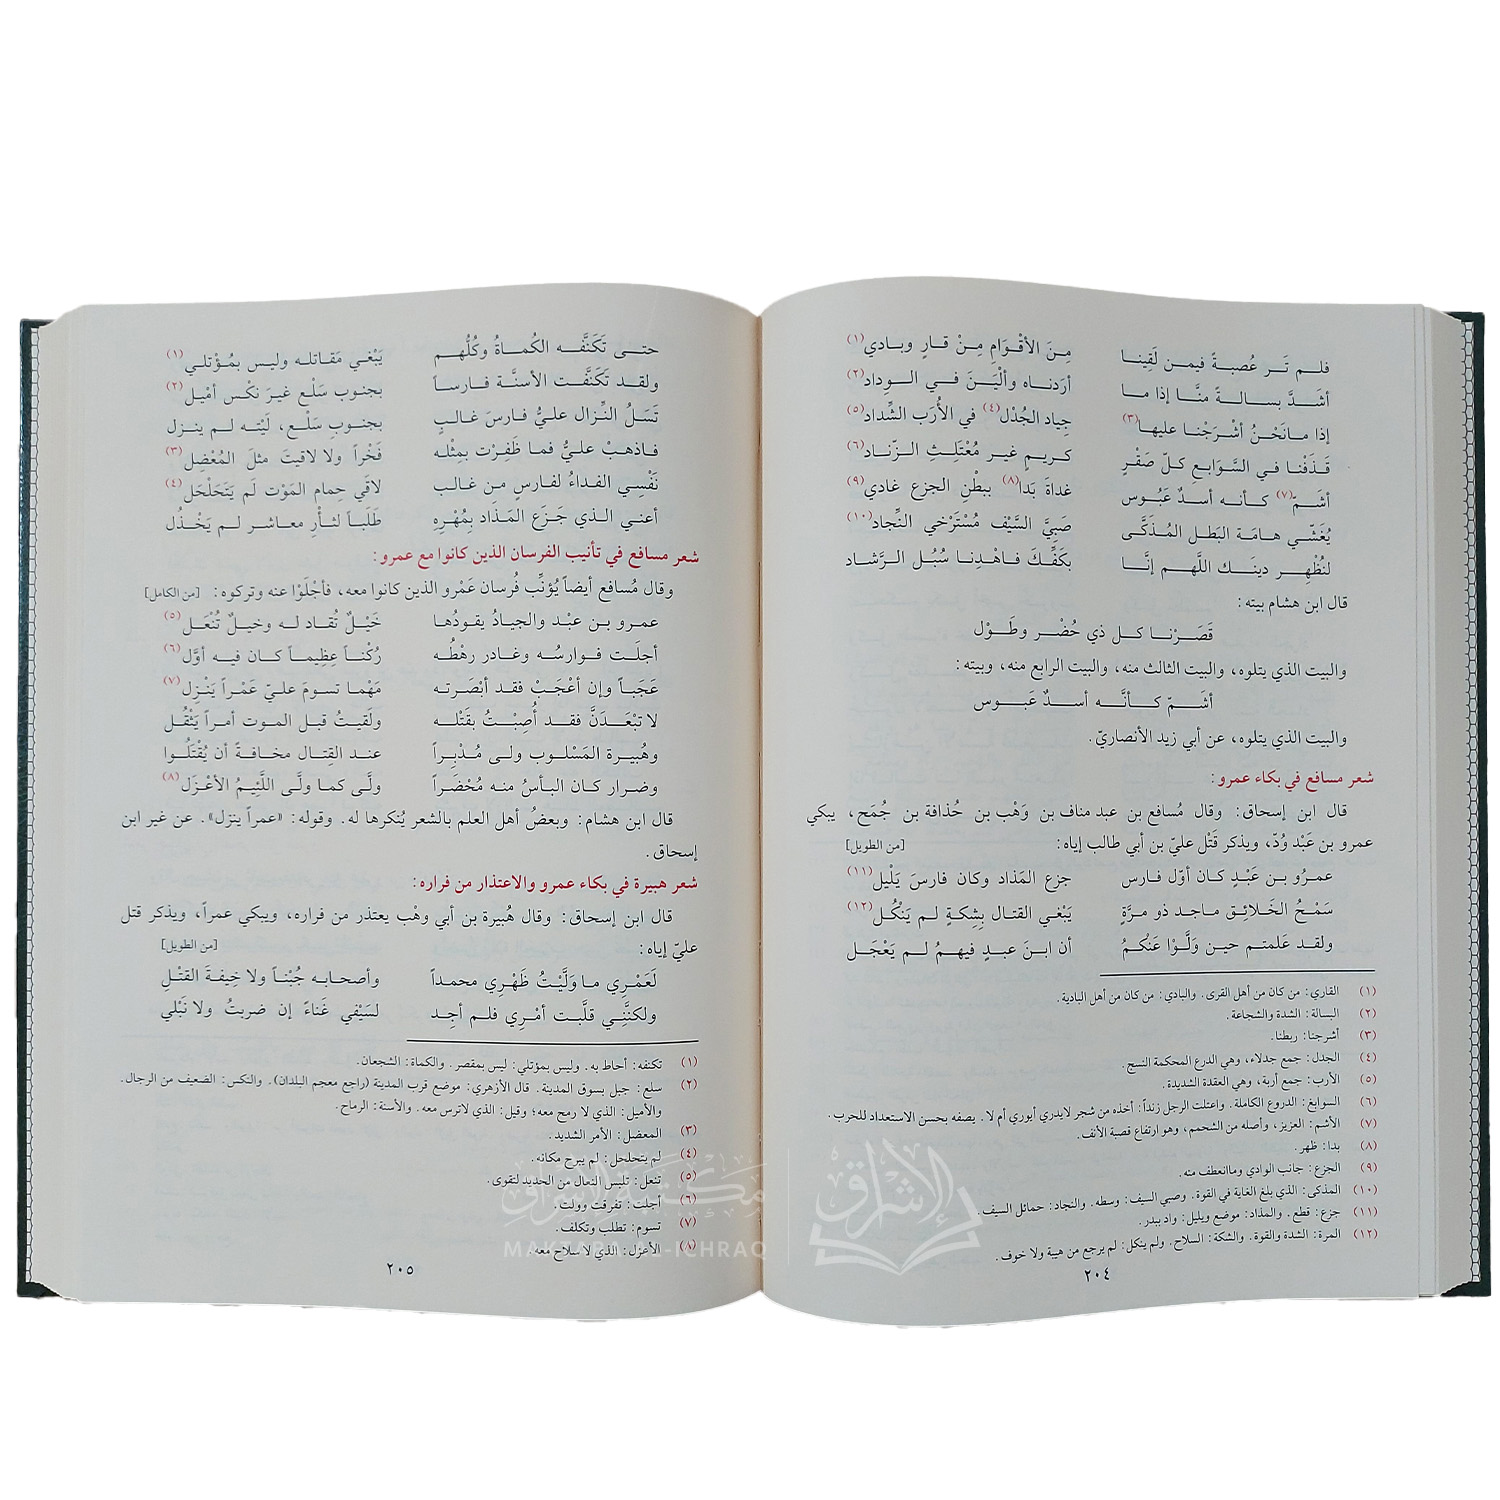 فلم تَر عُصبةً فيمن لَقِينا مِنَ الأقْوَامِ مِنْ قارٍ وبادي(١)
أشَدَّ بسالةً منَّا إذا ما أرَدناه وألْيَنَ في الوِداد(٢)
إذا ما نَحْنُ أشْرَجْنا عليها(٣) جِياد الجُدْل(٤) في الأُرَب الشِّداد(٥)
قَذَفْنا في السَّوَابغ كلّ صَقْرٍ كريمٍ غير مُعْتَلِثِ الزّناد(٦)
أشَمّ(٧) كأنه أسدٌ عَبُوس غداةَ بَدا(٨) ببَطْنِ الجزع غادي(٩)
يُغَشِّي هامَة البَطل المُذَكَّى صَبِيَّ السَّيْف مُسْتَرْخي النِّجاد(١٠)
لنُظْهِر دينَك اللَّهم إنَّا بكَفِّكَ فاهْدِنا سُبُل الرَّشاد
قال ابن هشام بيته:
قَصَرْنا كل ذي حُضْر وطَوْل
والبيت الذي يتلوه، والبيت الثالث منه، والبيت الرابع منه، وبيته:
أشَمّ كأنَّه أسدٌ عَبوس
والبيت الذي يتلوه، عن أبي زيد الأنصاريّ.
شعر مسافع في بكاء عمرو:
قال ابن إسحاق: وقال مُسافع بن عبد مناف بن وَهْب بن حُذافة بن جُمَح، يبكي
عمرو بن عَبْد وُدّ، ويذكر قَتْل عليّ بن أبي طالب إياه: [من الطويل]
عمرُو بن عَبْدٍ كان أوّل فارس جزع المَذاد وكان فارسَ يَلْيل(١١)
سَمْحُ الخَلائق ماجد ذو مرَّة يَبْغي القتال بِشِكةٍ لم يَنْكُل(١٢)
ولقد عَلمتم حين وَلَّوْا عَنْكُمُ أن ابنَ عبدٍ فيهمُ لم يَعْجَل
(١) القاري: من كان من أهل القرى. والبادي: من كان من أهل البادية.
(٢) البسالة: الشدة والشجاعة.
(٣) أشرجنا: ربطنا.
(٤) الجدل: جمع جدلاء، وهي الدرع المحكمة النسج.
(٥) الأرب: جمع أربة، وهي العقدة الشديدة.
(٦) السوابغ: الدروع الكاملة. واعتلث الرجل زنداً: أخذه من شجر لا يدري أيوري أم لا. يصفه بحسن الاستعداد للحرب.
(٧) الأشم: العزيز، وأصله من الشمم، وهو ارتفاع قصبة الأنف.
(٨) بدا: ظهر.
(٩) الجزع: جانب الوادي وما انعطف منه.
(١٠) المذكى: الذي بلغ الغاية في القوة. وصبي السيف: وسطه. والنجاد: حمائل السيف.
(١١) جزع: قطع. والمذاد: موضع ويليل: واد ببدر.
(١٢) المرة: الشدة والقوة. والشكة: السلاح. ولم ينكل: لم يرجع من هيبة ولا خوف.
٢٠٤
حتى تَكَنَّفه الكُماةُ وكُلُّهم يَبْغي مَقاتله وليس بمُؤْتلي(١)
ولقد تَكَنَّفت الأسنَّة فارساً بجنوب سَلْع غيرَ نكْس أمْيل(٢)
تَسَلُ النِّزال عليُّ فارسَ غالبٍ بجنوبِ سَلْع، لَيْته لم ينزل
فاذهبْ عليُّ فما ظَفِرْت بمِثْله فَخْراً ولا لاقيتَ مثلَ المُعْضِل(٣)
نَفْسِي الفداءُ لفارسٍ من غالب لاقَى حِمام المَوْت لَم يَتَحَلْحَل(٤)
أعني الذي جَزَع المَذَاد بِمُهْرِه طَلَباً لثأرِ معاشر لم يَخْذُل
شعر مسافع في تأنيب الفرسان الذين كانوا مع عمرو:
وقال مُسافع أيضاً يُؤنِّب فُرسان عَمْرو الذين كانوا معه، فأجْلَوْا عنه وتركوه: [من الكامل]
عمرو بن عبْد والجيادُ يقودُها خَيْلٌ تُقاد له وخيلٌ تُنْعَل(٥)
أجلَت فوارسُه وغادر رهْطُه رُكْناً عظيماً كان فيه أوَّل(٦)
عَجَباً وإن أعْجَبْ فقد أبْصَرته مَهْما تسومَ عليّ عَمْراً يَنْزِل(٧)
لا تبْعَدَنَّ فقد أُصِبْتُ بقَتْله ولَقيتُ قبل الموت أمراً يَثْقُل
وهُبيرة المَسْلوب ولى مُدْبِراً عند القِتال مخافةً أن يُقْتَلُوا
وضرار كان البأسُ منه مُحْضَراً ولَّى كما ولَّى اللَّئِيمُ الأعْزَل(٨)
قال ابن هشام: وبعضُ أهل العلم بالشعر يُنكرها له. وقوله: «عمراً ينزل». عن غير ابن
إسحاق.
شعر هبيرة في بكاء عمرو والاعتذار من فراره:
قال ابن إسحاق: وقال هُبيرة بن أبي وهْب يعتذر من فراره، ويبكي عمراً، ويذكر قتل
عليّ إياه: [من الطويل]
لَعَمْرِي ما وَلَّيْتُ ظَهْرِي محمداً وأصحابه جُبْناً ولا خِيفةَ القتْلِ
ولكنَّنِي قلَّبت أمْرِي فلم أجِد لسَيْفي غَناءً إن ضربتُ ولا نَبْلي
(١) تكنفه: أحاط به. وليس بمؤتلي: ليس بمقصر. والكماة: الشجعان.
(٢) سلع: جبل بسوق المدينة. قال الأزهري: موضع قرب المدينة (راجع معجم البلدان). والنكس: الضعيف من الرجال.
والأميل: الذي لا رمح معه؛ وقيل: الذي لا ترس معه. والأسنة: الرماح.
(٣) المعضل: الأمر الشديد.
(٤) لم يتحلحل: لم يبرح مكانه.
(٥) تنعل: تلبس النعال من الحديد لتقوى.
(٦) أجلت: تفرقت وولت.
(٧) تسوم: تطلب وتكلف.
(٨) الأعزل: الذي لا سلاح معه.
٢٠٥
مكتبة الإشراق
MAKTABA AL-ICHRAQ
الإشراق